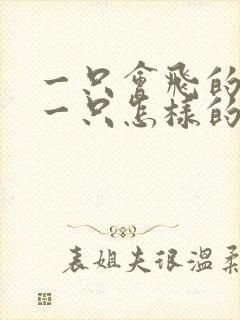 一只會飛的
一只怎樣的
表姐夫很溫柔